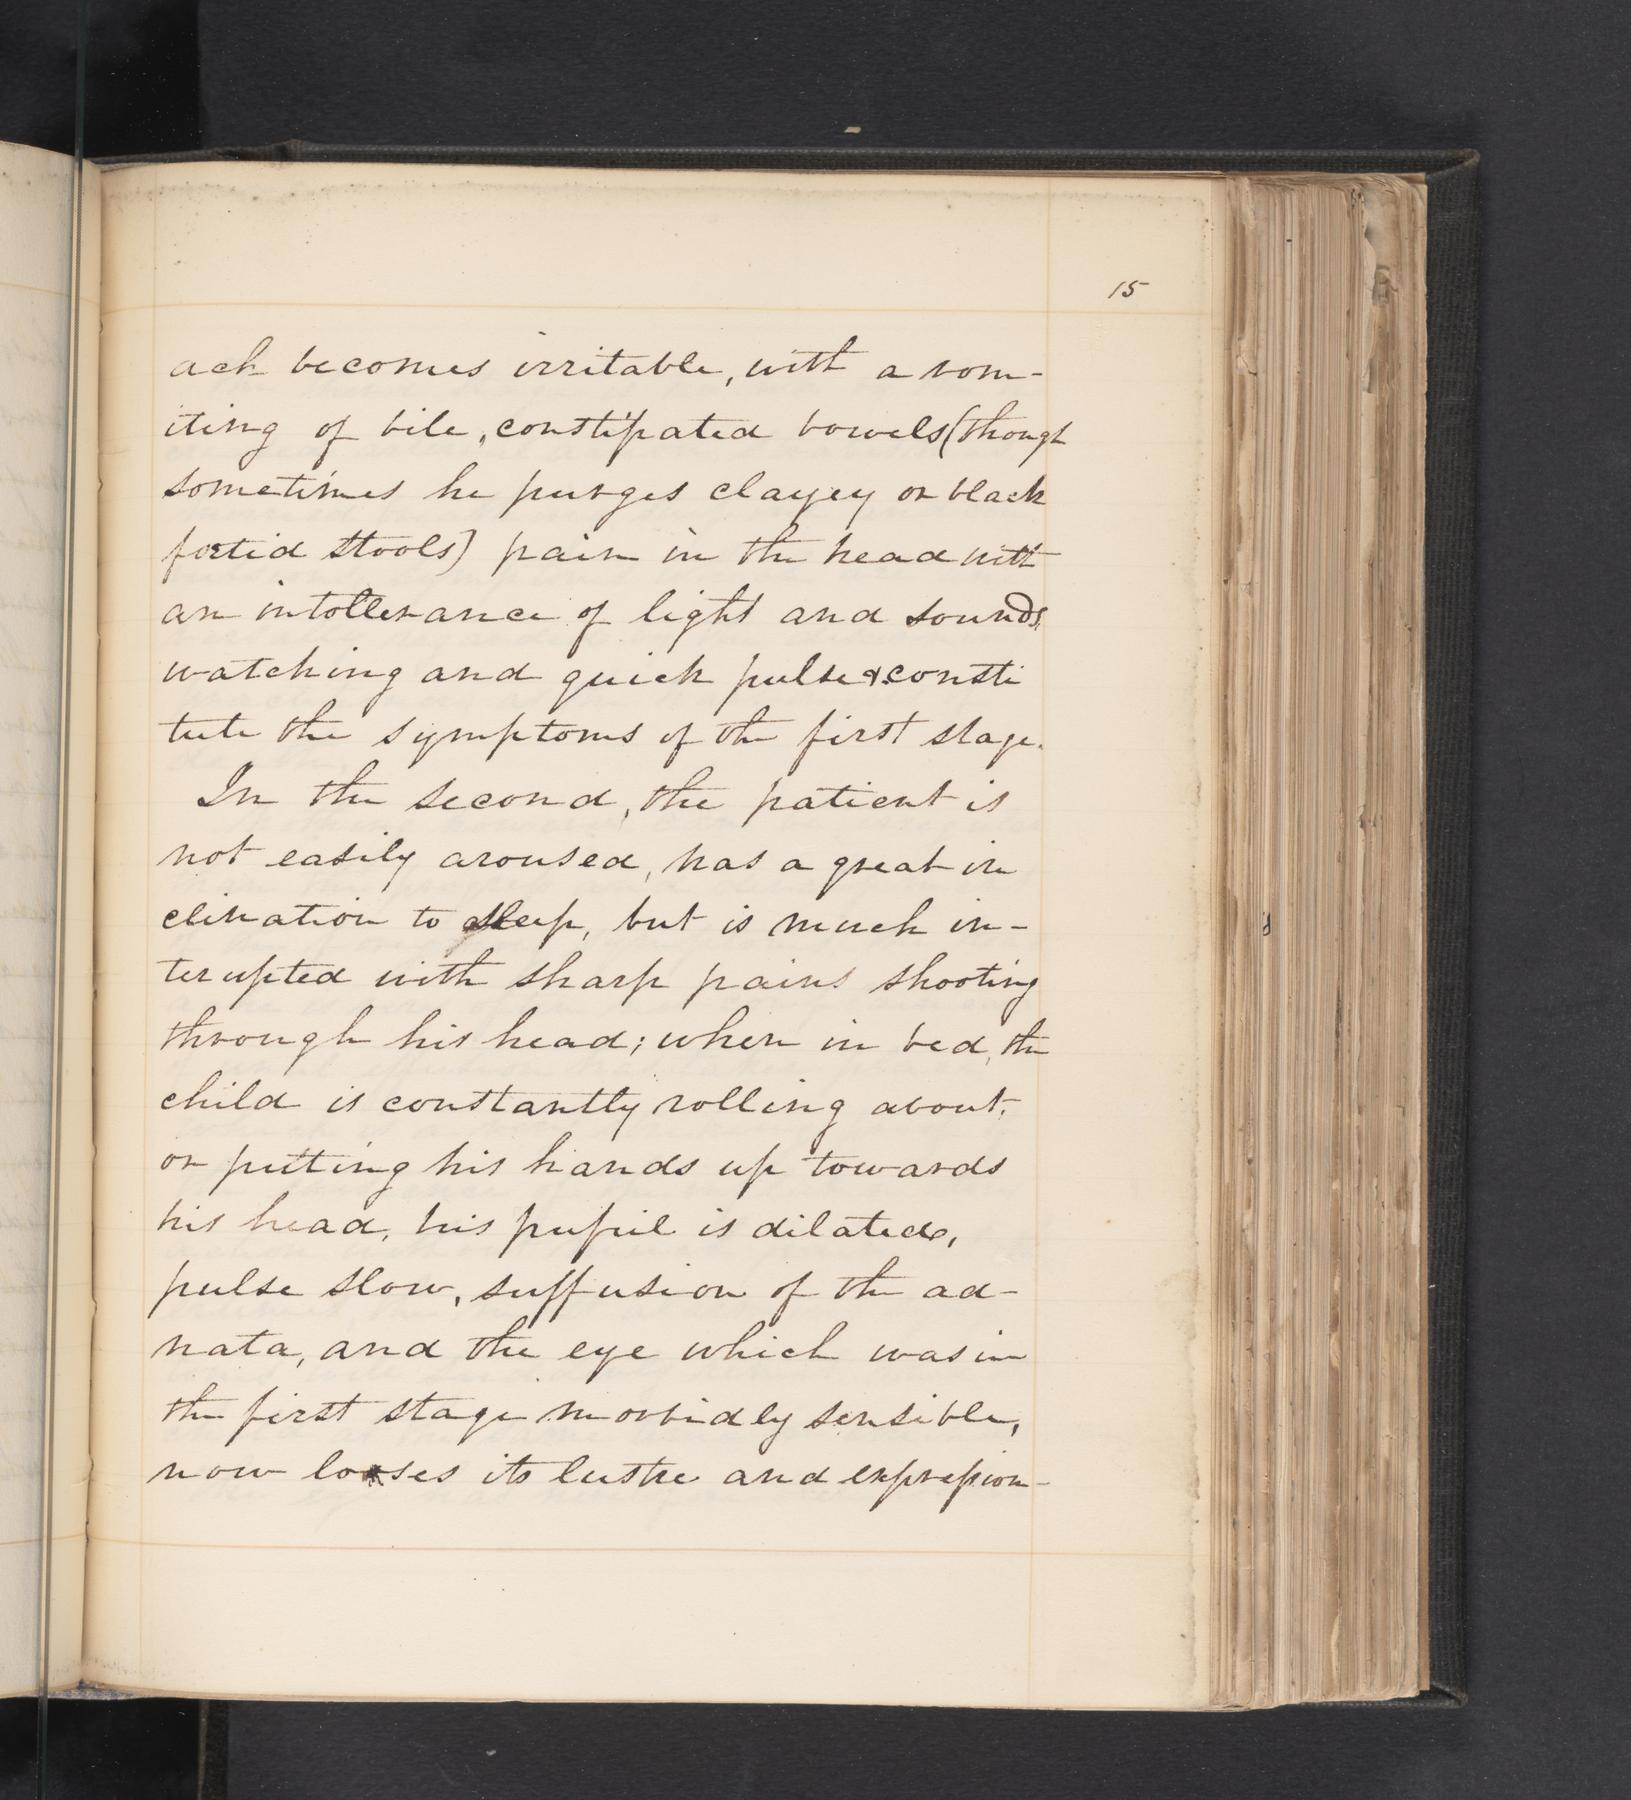 15
ach becomes irritable, with a vom-
iting of bile, constipated bowels (though
sometimes he purges clayey or black
foetid stools) pain in the head with
an intollerance of light and sounds,
watching and quick pulse &c. consti
tute the symptoms of the first stage.
In the second, the patient is
not easily aroused, has a great in
clination to sleep, but is much in-
terupted with sharp pains shooting
through his head; when in bed, the
child is constantly rolling about,
or putting his hands up towards
his head, his pupil is dilated,
pulse slow, suffusion of the ad-
nata, and the eye which was in
the first stage morbidly sensible,
now looses its lustre and expression-